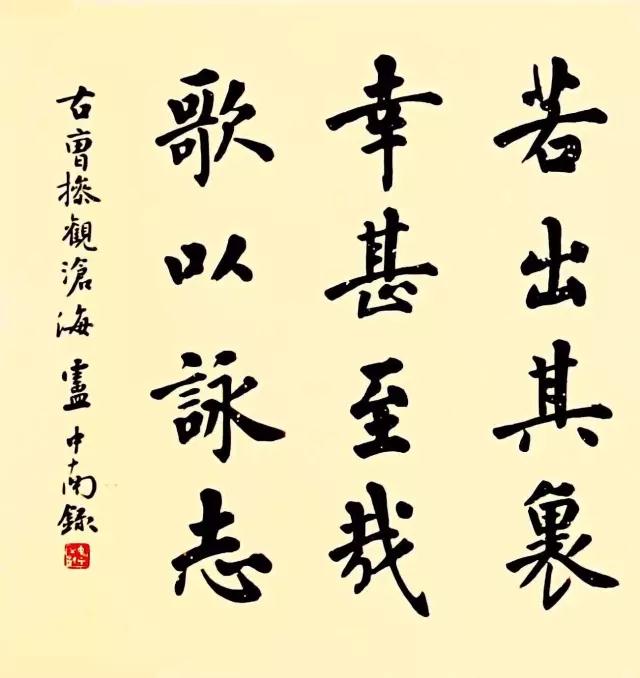 若出其裏
幸甚至哉
歌以詠志
右曹操觀滄海 盧中南録